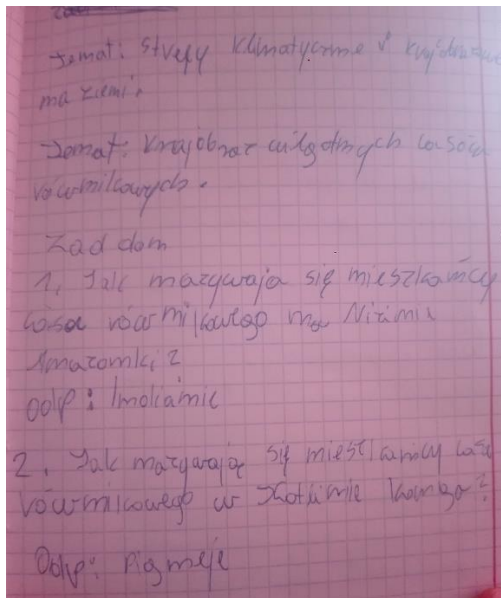 Temat: Strefy klimatyczne i krajobrazowe
na ziemi.
Temat: Krajobraz wilgotnych lasów
równikowych.
Zad dom
1. Jak nazywają się mieszkańcy
lasu równikowego na Nizinie
Amazonki?
Odp: Indianie
2. Jak nazywają się mieszkańcy lasu
równikowego w Kotlinie Konga?
Odp: Pigmeje